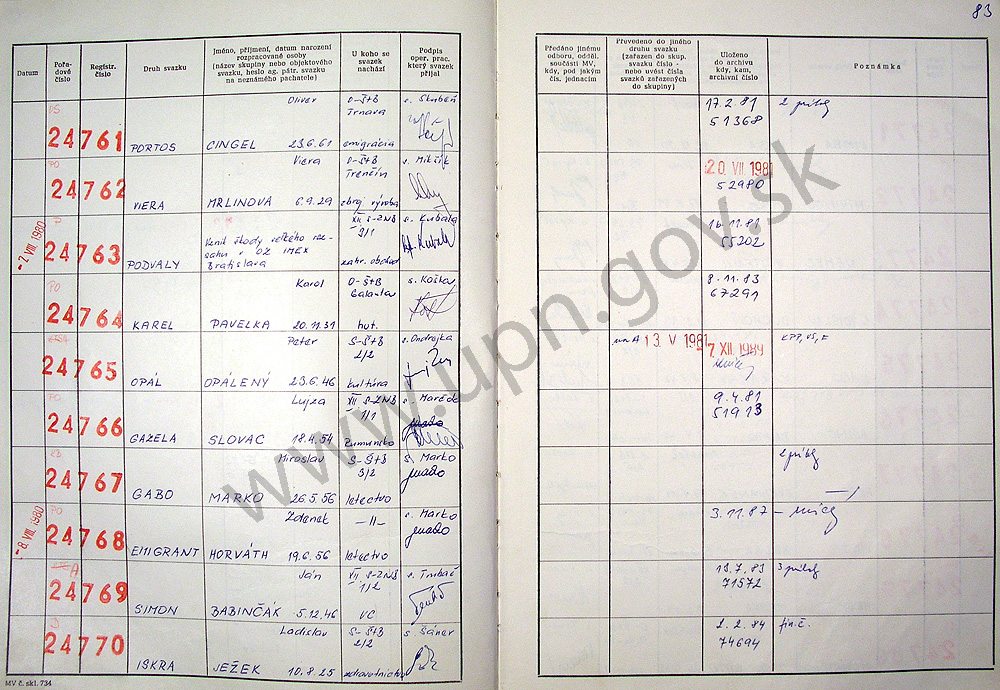 83
Datum
Pořadové číslo
Registr. číslo
Druh svazku
Jméno, příjmení, datum narození rozpracované osoby (název skupiny nebo objektového svazku, heslo ag. pátr. svazku na neznámého pachatele)
U koho se svazek nachází
Podpis oper. prac. který svazek přijal
Předáno jinému odboru, odděl. součásti MV, kdy, pod jakým čís. jednacím
Převedeno do jiného druhu svazku (zařazen do skup. svazku číslo - nebo uvést čísla svazků zařazených do skupiny)
Uloženo do archivu kdy, kam, archivní číslo
Poznámka
Oliver O-ŠtB s. Skubeň 17.2.81
24761 Trnava 51368
PORTOS CINGEL 23.6.61 emigrácia
PO Viera O-ŠtB s. Mikšík 20. VII. 1981
24762 Trenčín 52980
VIERA MRLINOVÁ 6.9.29 zbroj. výroba
- 7. VIII. 1980
XII S-ZNB s. Kubala 16.11.81
24763 Vznik škody veľkého rozsahu v OZ IMEX Bratislava 3/1 55202
PODVALY zahr. obchod
PO Karol O-ŠtB s. Koška 8.11.83
24764 Galanta 67291
KAREL PAVELKA 20.11.31 hut.
Peter S-ŠtB s. Ondrejka 13. V 1981 7. XII. 1989
24765 2/2
OPÁL OPÁLENÝ 23.6.46 kultúra
PO Lujza XII S-ZNB 9.4.81
24766 1/1 51913
GAZELA SLOVÁC 18.4.54 Rumunsko
Miroslav S-ŠtB s. Marko
24767 3/2
GABO MARKO 26.5.56 letectvo
- 8. VIII. 1980
PO Zdenek —||— s. Marko 3.11.87
24768
EMIGRANT HORVÁTH 19.6.56 letectvo
A Ján XII S-ZNB 13.7.83
24769 1/2 71572
SIMON BABINČÁK 5.12.46 VC
Ladislav S-ŠtB s. Šáner 2.2.84 fin.č.
24770 2/2 74694
ISKRA JEŽEK 10.8.25 zdravotníctvo
MV č. skl. 734
www.upn.gov.sk